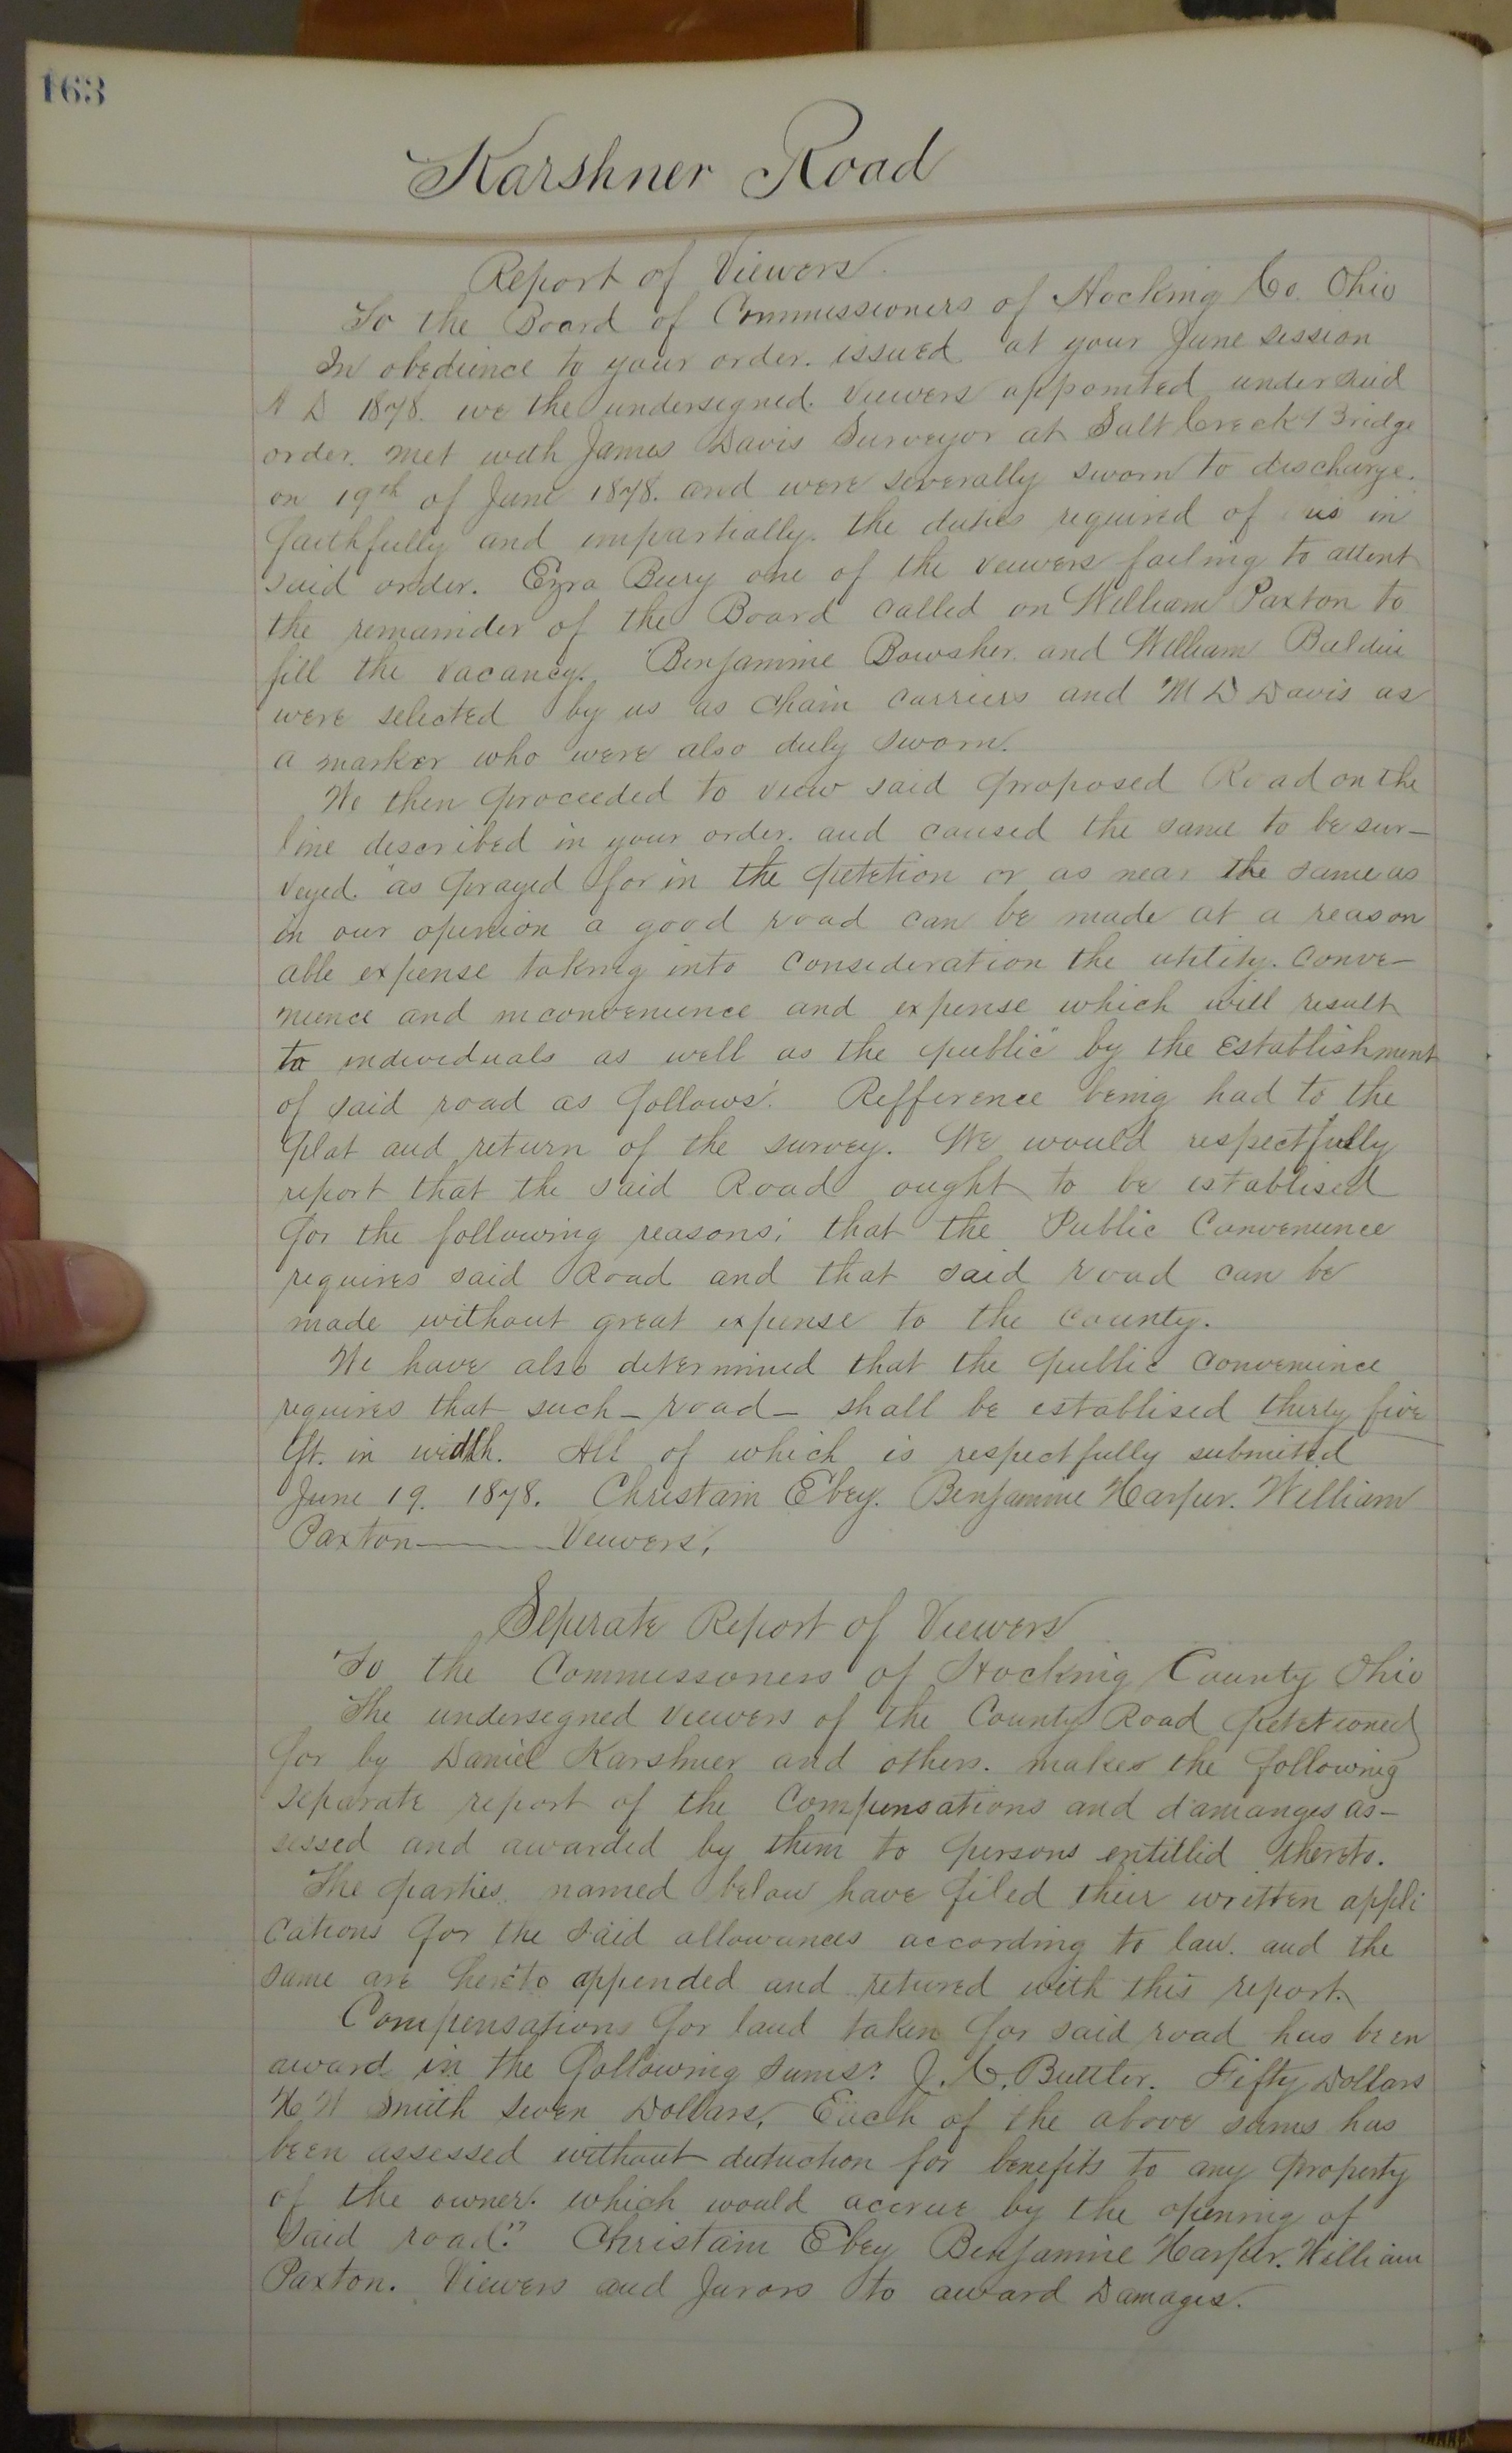 163
Karshner Road
Report of Viewers.
To the Board of Commissioners of Hocking Co. Ohio
In obedience to your order. issued at your June session
A D 1878. we the undersigned. Viewers appointed under said
order. met with James Davis Surveyor at Salt Creek Bridge
on 19th of June 1878. and were severally sworn to discharge.
faithfully and impartially. the duties required of us in
said order. Ezra Bury one of the veiwers failing to attent
the remainder of the Board called on William Paxton to
fill the vacancy. Benjamine Bowsher. and William
were selected by us as chain carriers and M D Davis as
a marker who were also duly sworn.
We then proceeded to view said proposed Road on the
line described in your order. and caused the same to be sur-
veyed. "as prayed for in the petetion or as near the same as
in our openion a good road can be made at a reason
able expense taking into consideration the utility. conve-
nience and inconvenience and expense which will result
to individuals as well as the public" by the establishment
of said road as follows: Refference being had to the
plat and return of the survey. We would respectfully
report that the said Road ought to be establised
for the following reasons; that the Public Convenience
requires said Road and that said road can be
made without great expense to the county.
We have also determined that the public convenience
requires that such - road - shall be establised thirty five
ft. in width. All of which is respectfully submited
June 19. 1878. Christain Ebey. Benjamine Harper. William
Paxton Veiwers.
Seperate Report of Viewers
To the Commissoners of Hocking County Ohio
The undersegned viewers of the County Road petetioned
for by Daniel Karshner and others. makes the following
separate report of the Compensations and damanges as-
sessed and awarded by them to persons entitlid thereto.
The parties named below have filed their written appli
cations for the said allowances according to law. and the
same are hereto appended and retured with this report.
Compensations for land taken for said road has been
award in the following sums: J. C. Buttler. Fifty Dollars
H W Smith Seven Dollars, Each of the above sums has
been assessed without deduction for benefits to any property
of the owner. which would accrue by the opening of
said road." Christain Ebey Benjamine Harper. William
Paxton. Viewers and Jurors to award Damages.